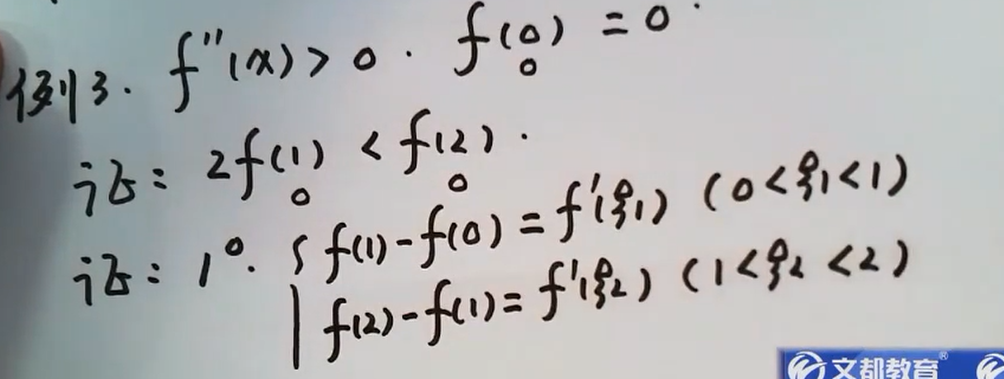 例3. f''(x) > 0. f(0) = 0.
证: 2f(1) < f(2).
证: 1°. { f(1)-f(0) = f'(ξ1) (0<ξ1<1)
f(2)-f(1) = f'(ξ2) (1<ξ2<2)
文都教育®